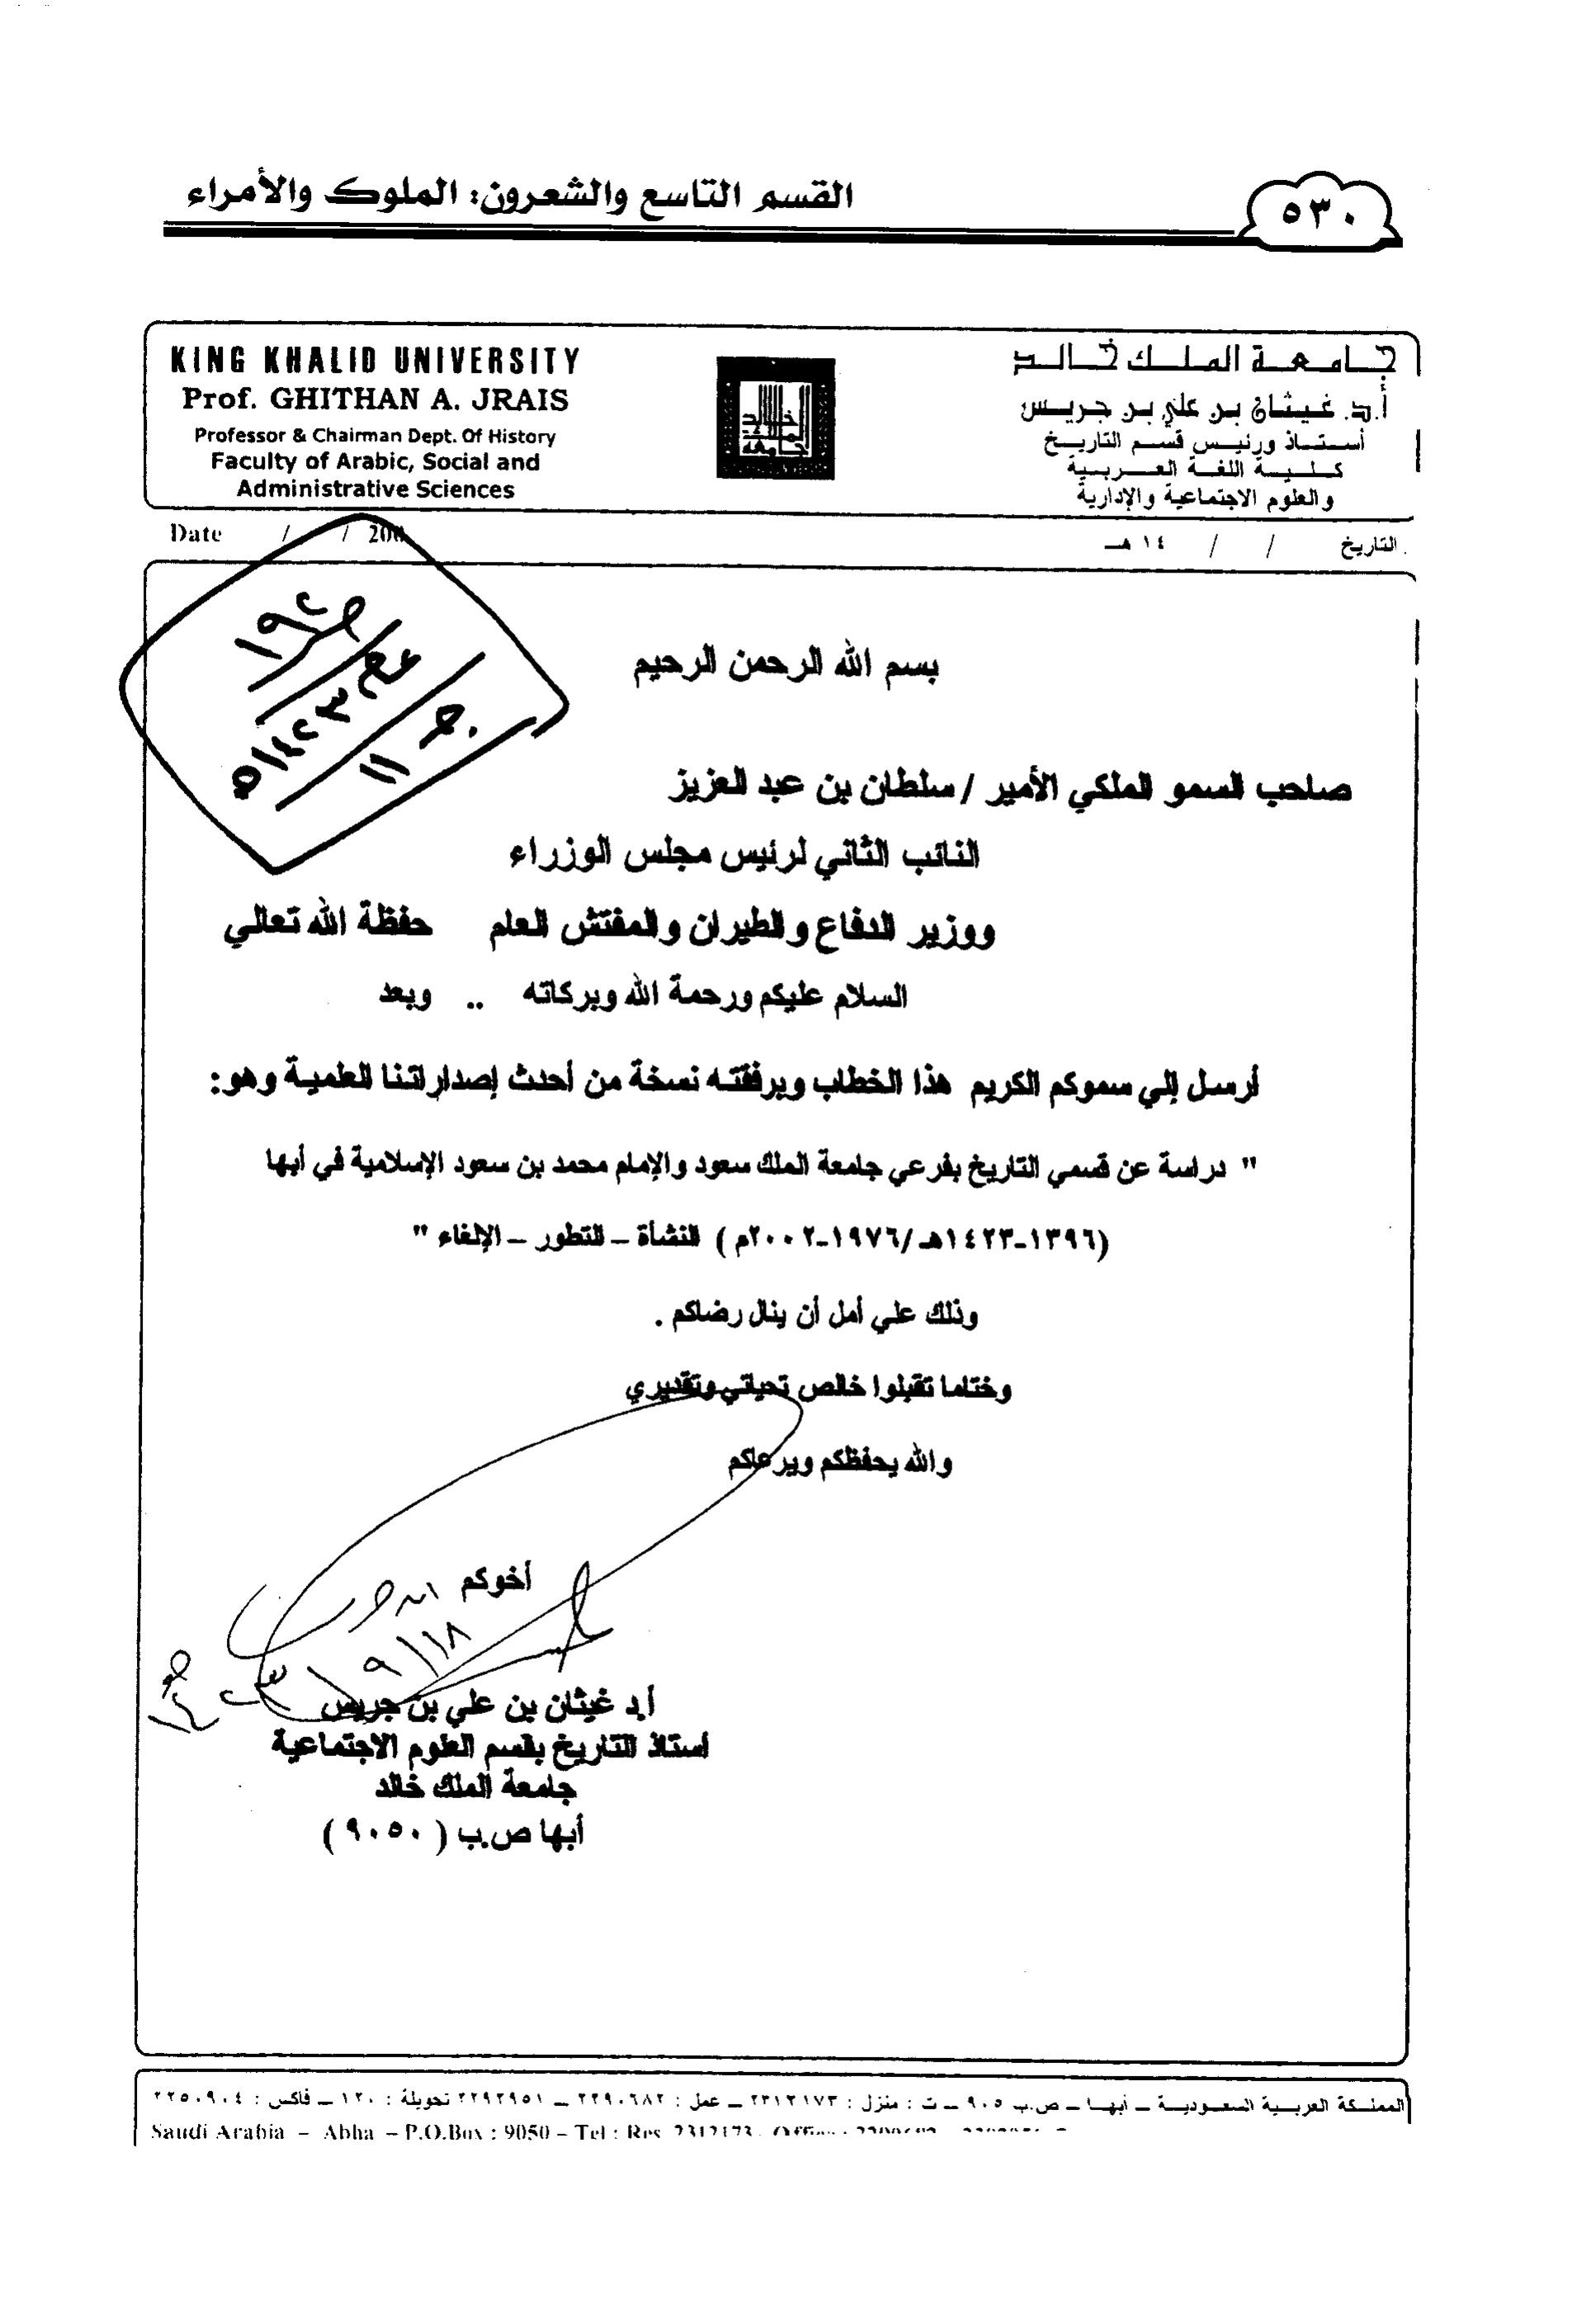 القسم التاسع والشعرون: الملوك والأمراء
٥٣٠
KING KHALID UNIVERSITY
Prof. GHITHAN A. JRAIS
Professor & Chairman Dept. Of History
Faculty of Arabic, Social and
Administrative Sciences
جامعة الملك خالد
أ.د. غيثان بن علي بن جريس
أستاذ ورئيس قسم التاريخ
كلية اللغة العربية
والعلوم الاجتماعية والإدارية
Date / / 200
التاريخ / / ١٤ هـ
بسم الله الرحمن الرحيم
صاحب السمو الملكي الأمير / سلطان بن عبد العزيز
النائب الثاني لرئيس مجلس الوزراء
ووزير الدفاع والطيران والمفتش العام حفظة الله تعالي
السلام عليكم ورحمة الله وبركاته .. وبعد
أرسل إلي سموكم الكريم هذا الخطاب وبرفقته نسخة من أحدث إصداراتنا العلمية وهو:
" دراسة عن قسمي التاريخ بفرعي جامعة الملك سعود والإمام محمد بن سعود الإسلامية في أبها
(١٣٩٦-١٤٢٣هـ/١٩٧٦-٢٠٠٢م) النشأة – التطور – الإلغاء "
وذلك علي أمل أن ينال رضاكم .
وختاما تقبلوا خالص تحياتي وتقديري
والله يحفظكم ويرعاكم
أخوكم
١٨/٩/
أ.د غيثان بن علي بن جريس
أستاذ التاريخ بقسم العلوم الاجتماعية
جامعة الملك خالد
أبها ص.ب ( ٩٠٥٠ )
المملكة العربية السعودية – أبها – ص.ب ٩٠٥ – ت : منزل : ٢٣١٢١٧٣ – عمل : ٢٢٩٠٦٨٢ – ٢٢٩٢٩٥١ تحويلة : ١٢٠ – فاكس : ٢٢٥٠٩٠٤
Saudi Arabia – Abha – P.O.Box : 9050 – Tel : Res 2312173